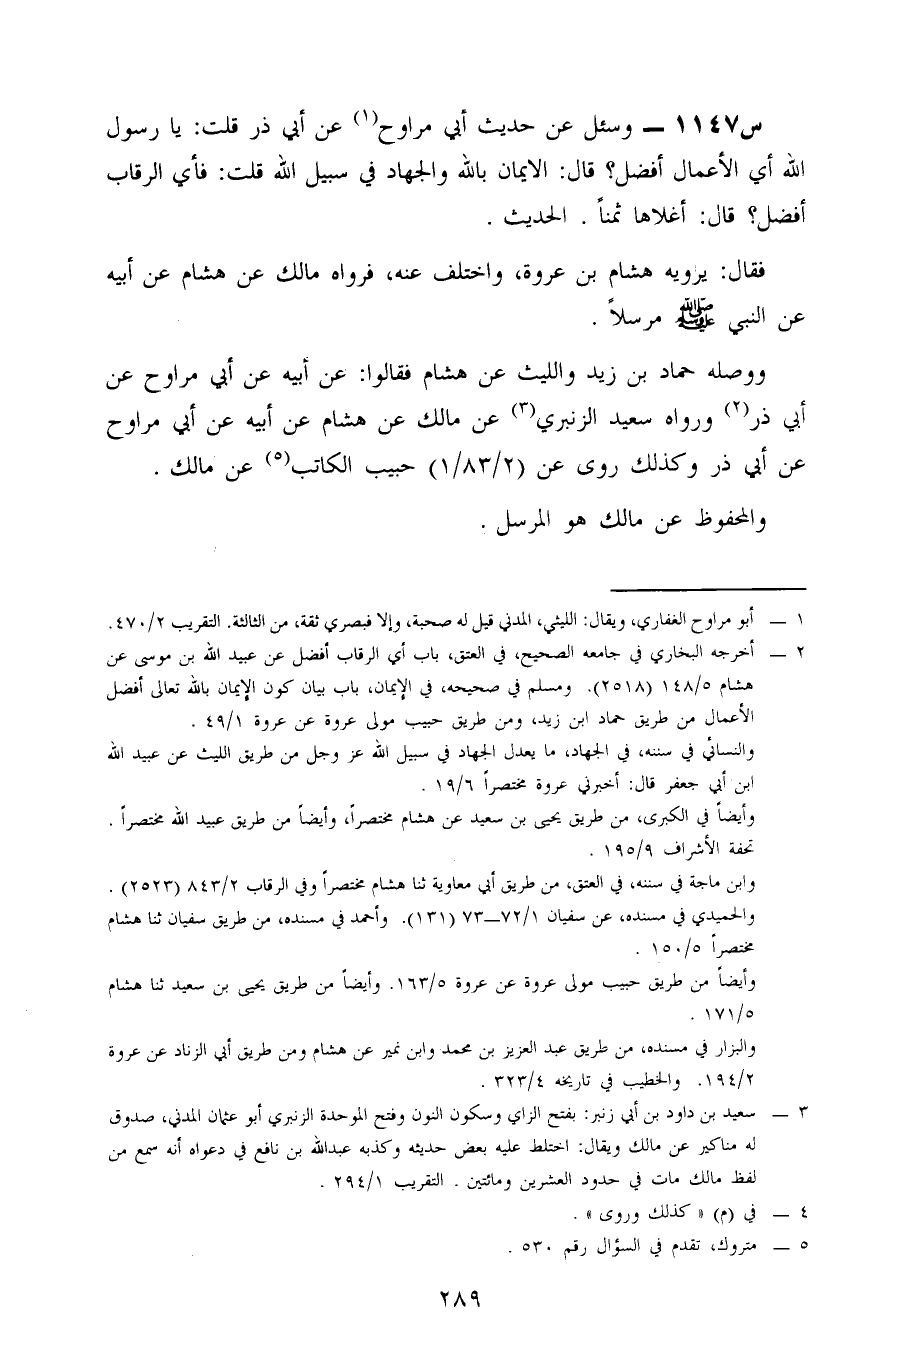 س١١٤٧ ــ وسئل عن حديث أبي مراوح(١) عن أبي ذر قلت: يا رسول
الله أي الأعمال أفضل؟ قال: الايمان بالله والجهاد في سبيل الله قلت: فأي الرقاب
أفضل؟ قال: أغلاها ثمناً . الحديث .
فقال: يرويه هشام بن عروة، واختلف عنه، فرواه مالك عن هشام عن أبيه
عن النبي ﷺ مرسلاً .
ووصله حماد بن زيد والليث عن هشام فقالوا: عن أبيه عن أبي مراوح عن
أبي ذر(٢) ورواه سعيد الزنبري(٣) عن مالك عن هشام عن أبيه عن أبي مراوح
عن أبي ذر وكذلك روى عن (١/٨٣/٢) حبيب الكاتب(٥) عن مالك .
والمحفوظ عن مالك هو المرسل .
١ ــ أبو مراوح الغفاري، ويقال: الليثي، المدني قيل له صحبة، وإلا فبصري ثقة، من الثالثة. التقريب ٤٧٠/٢.
٢ ــ أخرجه البخاري في جامعه الصحيح، في العتق، باب أي الرقاب أفضل عن عبيد الله بن موسى عن
هشام ١٤٨/٥ (٢٥١٨). ومسلم في صحيحه، في الإيمان، باب بيان كون الإيمان بالله تعالى أفضل
الأعمال من طريق حماد ابن زيد، ومن طريق حبيب مولى عروة عن عروة ٤٩/١ .
والنسائي في سننه، في الجهاد، ما يعدل الجهاد في سبيل الله عز وجل من طريق الليث عن عبيد الله
ابن أبي جعفر قال: أخبرني عروة مختصراً ١٩/٦ .
وأيضاً في الكبرى، من طريق يحيى بن سعيد عن هشام مختصراً، وأيضاً من طريق عبيد الله مختصراً .
تحفة الأشراف ١٩٥/٩ .
وابن ماجة في سننه، في العتق، من طريق أبي معاوية ثنا هشام مختصراً وفي الرقاب ٨٤٣/٢ (٢٥٢٣) .
والحميدي في مسنده، عن سفيان ٧٢/١ــ٧٣ (١٣١). وأحمد في مسنده، من طريق سفيان ثنا هشام
مختصراً ١٥٠/٥ .
وأيضاً من طريق حبيب مولى عروة عن عروة ١٦٣/٥. وأيضاً من طريق يحيى بن سعيد ثنا هشام
١٧١/٥ .
والبزار في مسنده، من طريق عبد العزيز بن محمد وابن نمير عن هشام ومن طريق أبي الزناد عن عروة
١٩٤/٢. والخطيب في تاريخه ٣٢٣/٤ .
٣ ــ سعيد بن داود بن أبي زنبر: بفتح الزاي وسكون النون وفتح الموحدة الزنبري أبو عثمان المدني، صدوق
له مناكير عن مالك ويقال: اختلط عليه بعض حديثه وكذبه عبدالله بن نافع في دعواه أنه سمع من
لفظ مالك مات في حدود العشرين ومائتين . التقريب ٢٩٤/١ .
٤ ــ في (م) « كذلك وروى » .
٥ ــ متروك، تقدم في السؤال رقم ٥٣٠ .
٢٨٩